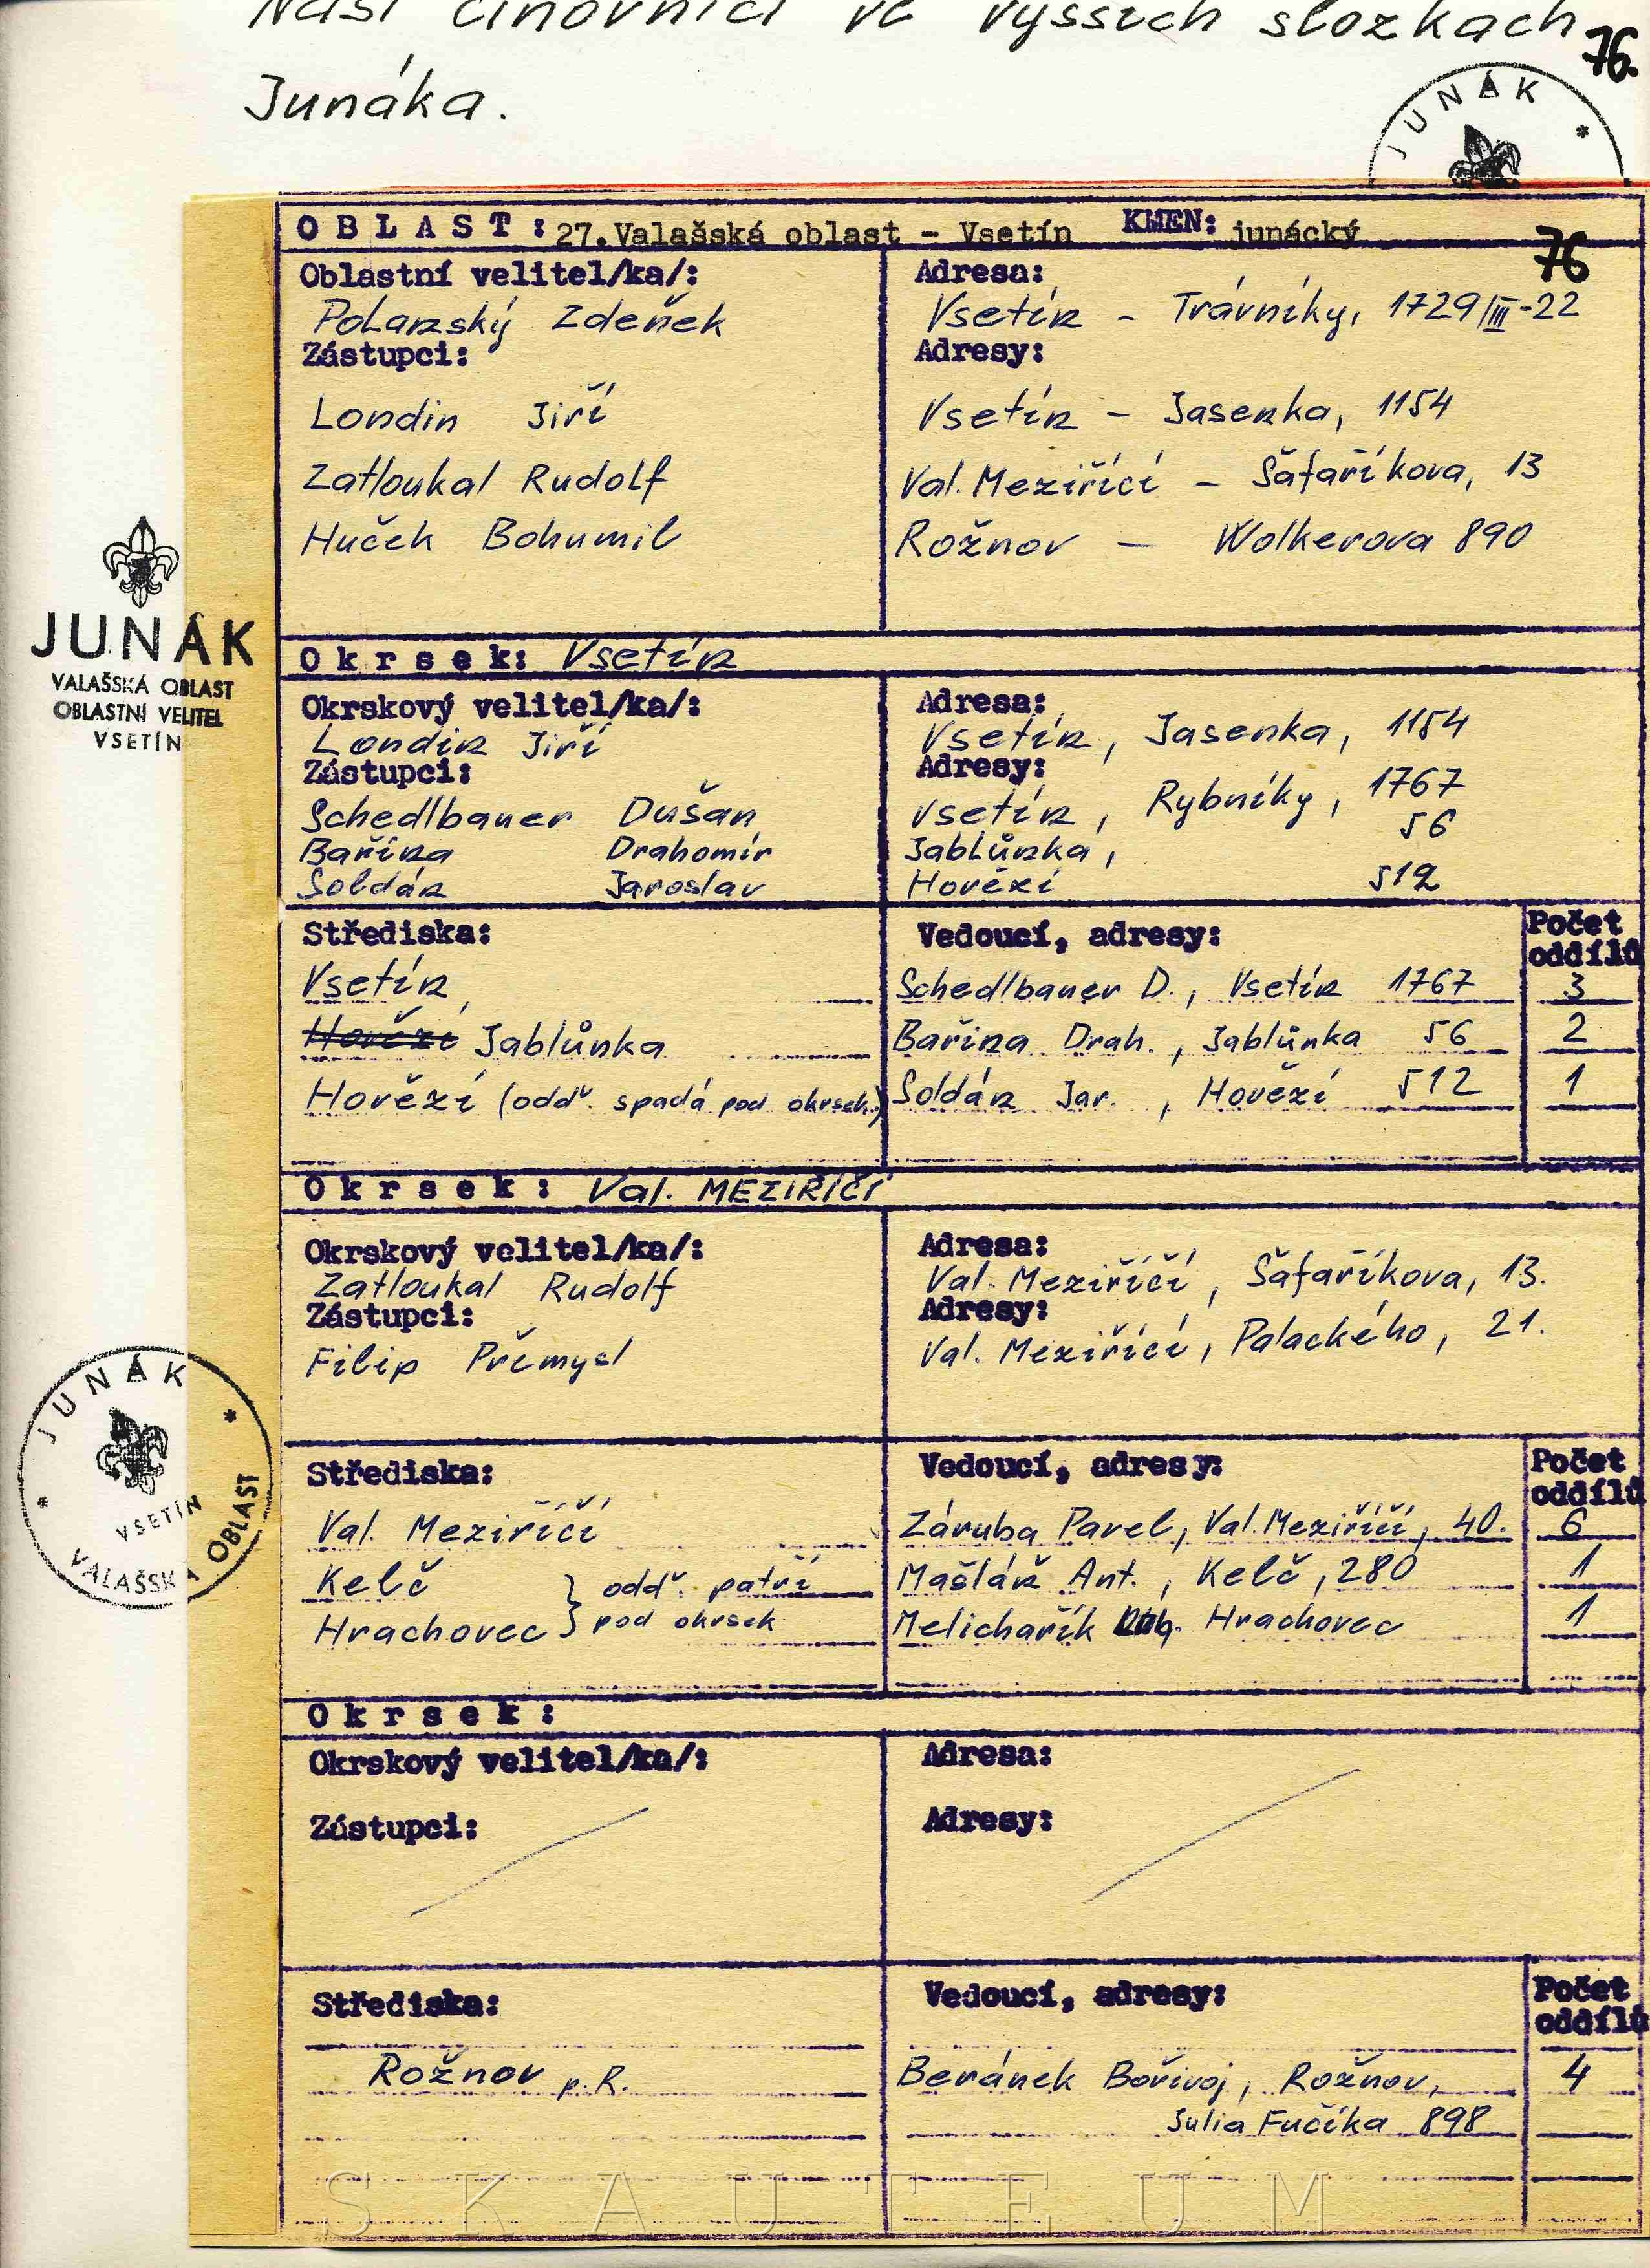 Naši činovníci ve vyšších složkách
76.
Junáka.
JUNÁK *
OBLAST: 27.Valašská oblast - Vsetín KMEN: junácký
76
Oblastní velitel/ka/: Adresa:
Polanský Zdeněk Vsetín - Trávníky, 1729/III-22
Zástupci: Adresy:
Londin Jiří Vsetín - Jasenka, 1154
Zatloukal Rudolf Val. Meziříčí - Šafaříkova, 13
Huček Bohumil Rožnov - Wolkerova 890
JUNÁK
VALAŠSKÁ OBLAST
OBLASTNÍ VELITEL
VSETÍN
Okrsek: Vsetín
Okrskový velitel/ka/: Adresa:
Londin Jiří Vsetín, Jasenka, 1154
Zástupci: Adresy:
Schedlbauer Dušan Vsetín, Rybníky, 1767
Bařina Drahomír Jablůnka, 56
Soldán Jaroslav Hovězí 512
Střediska: Vedoucí, adresy: Počet oddílů
Vsetín Schedlbauer D., Vsetín 1767 3
Hovězí Jablůnka Bařina Drah., Jablůnka 56 2
Hovězí (odd. spadá pod okrsek) Soldán Jar., Hovězí 512 1
Okrsek: Val. MEZIŘÍČÍ
Okrskový velitel/ka/: Adresa:
Zatloukal Rudolf Val. Meziříčí, Šafaříkova, 13.
Zástupci: Adresy:
Filip Přemysl Val. Meziříčí, Palackého, 21.
JUNÁK * VSETÍN * VALAŠSKÁ OBLAST
Střediska: Vedoucí, adresy: Počet oddílů
Val. Meziříčí Záruba Pavel, Val. Meziříčí, 40. 6
Kelč } odd. patří Mašláň Ant., Kelč, 280 1
Hrachovec } pod okrsek Melichařík Hrachovec 1
Okrsek:
Okrskový velitel/ka/: Adresa:
Zástupci: Adresy:
Střediska: Vedoucí, adresy: Počet oddílů
Rožnov p. R. Beránek Bořivoj, Rožnov, 4
Julia Fučíka 898
SKAUTEUM